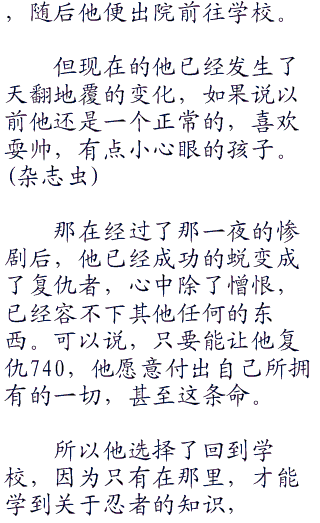 ，随后他便出院前往学校。
但现在的他已经发生了
天翻地覆的变化，如果说以
前他还是一个正常的，喜欢
耍帅，有点小心眼的孩子。
(杂志虫)
那在经过了那一夜的惨
剧后，他已经成功的蜕变成
了复仇者，心中除了憎恨，
已经容不下其他任何的东
西。可以说，只要能让他复
仇740，他愿意付出自己所拥
有的一切，甚至这条命。
所以他选择了回到学
校，因为只有在那里，才能
学到关于忍者的知识，